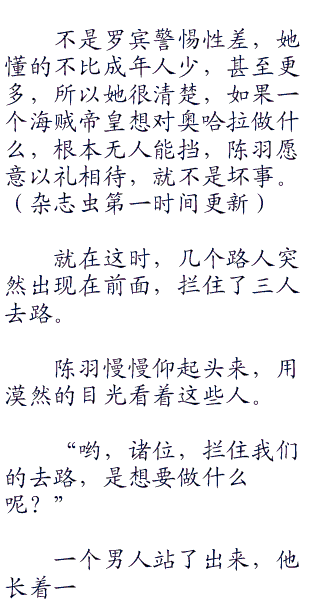 不是罗宾警惕性差，她
懂的不比成年人少，甚至更
多，所以她很清楚，如果一
个海贼帝皇想对奥哈拉做什
么，根本无人能挡，陈羽愿
意以礼相待，就不是坏事。
（杂志虫第一时间更新）
就在这时，几个路人突
然出现在前面，拦住了三人
去路。
陈羽慢慢仰起头来，用
漠然的目光看着这些人。
“哟，诸位，拦住我们
的去路，是想要做什么
呢？”
一个男人站了出来，他
长着一